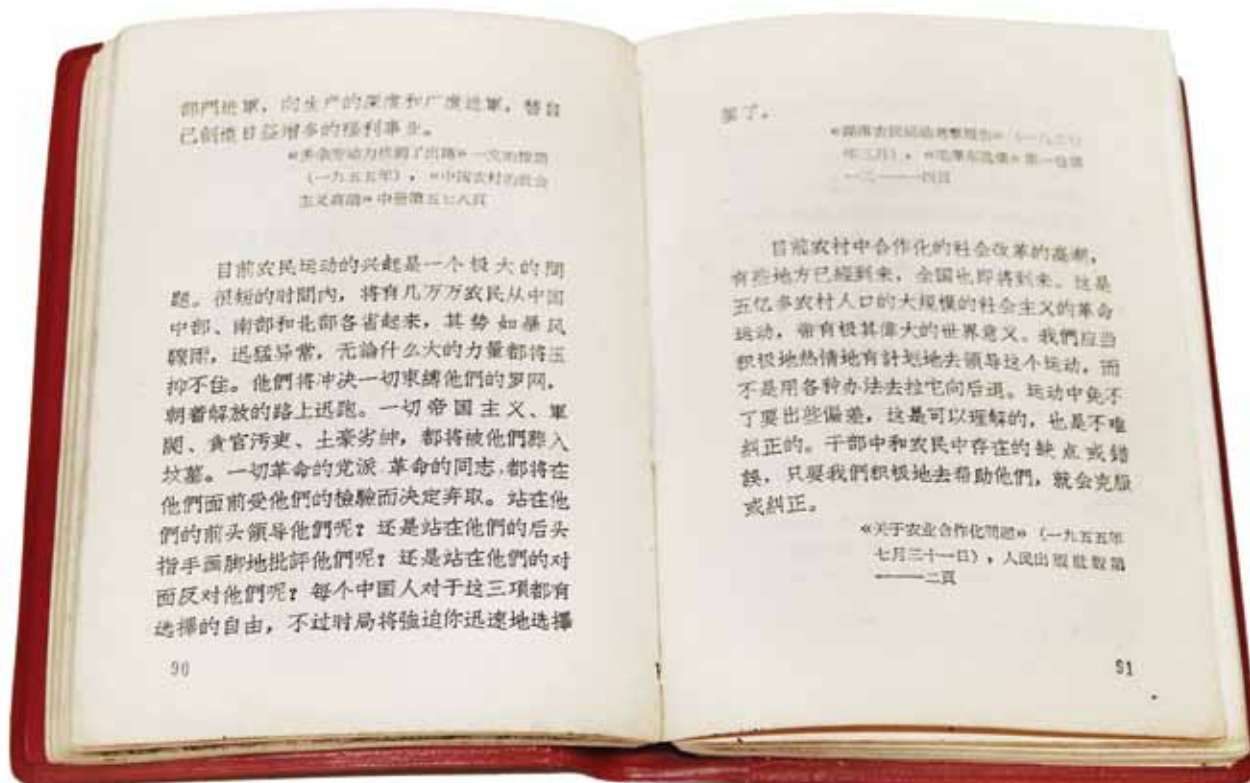 部門进軍，向生产的深度和广度进軍，替自
己創造日益增多的福利事业。
《多余劳动力找到了出路》一文的按語
（一九五五年），《中国农村的社会
主义高潮》中册第五七八頁
目前农民运动的兴起是一个极大的問
題。很短的时間內，将有几万万农民从中国
中部、南部和北部各省起来，其势如暴风
驟雨，迅猛异常，无論什么大的力量都将压
抑不住。他們将冲决一切束縛他們的罗网，
朝着解放的路上迅跑。一切帝国主义、軍
閥、貪官污吏、土豪劣紳，都将被他們葬入
坟墓。一切革命的党派、革命的同志，都将在
他們面前受他們的檢驗而决定弃取。站在他
們的前头領导他們呢？还是站在他們的后头
指手画脚地批評他們呢？还是站在他們的对
面反对他們呢？每个中国人对于这三項都有
选擇的自由，不过时局将强迫你迅速地选擇
90
罢了。
《湖南农民运动考察报告》（一九二七
年三月），《毛澤东选集》第一卷第
一三——一四頁
目前农村中合作化的社会改革的高潮，
有些地方已經到来，全国也即将到来。这是
五亿多农村人口的大规模的社会主义的革命
运动，带有极其偉大的世界意义。我們应当
积极地热情地有計划地去領导这个运动，而
不是用各种办法去拉它向后退。运动中免不
了要出些偏差，这是可以理解的，也是不难
糾正的。干部中和农民中存在的缺点或錯
誤，只要我們积极地去帮助他們，就会克服
或糾正。
《关于农业合作化問題》（一九五五年
七月三十一日），人民出版社版第
一——二頁
91